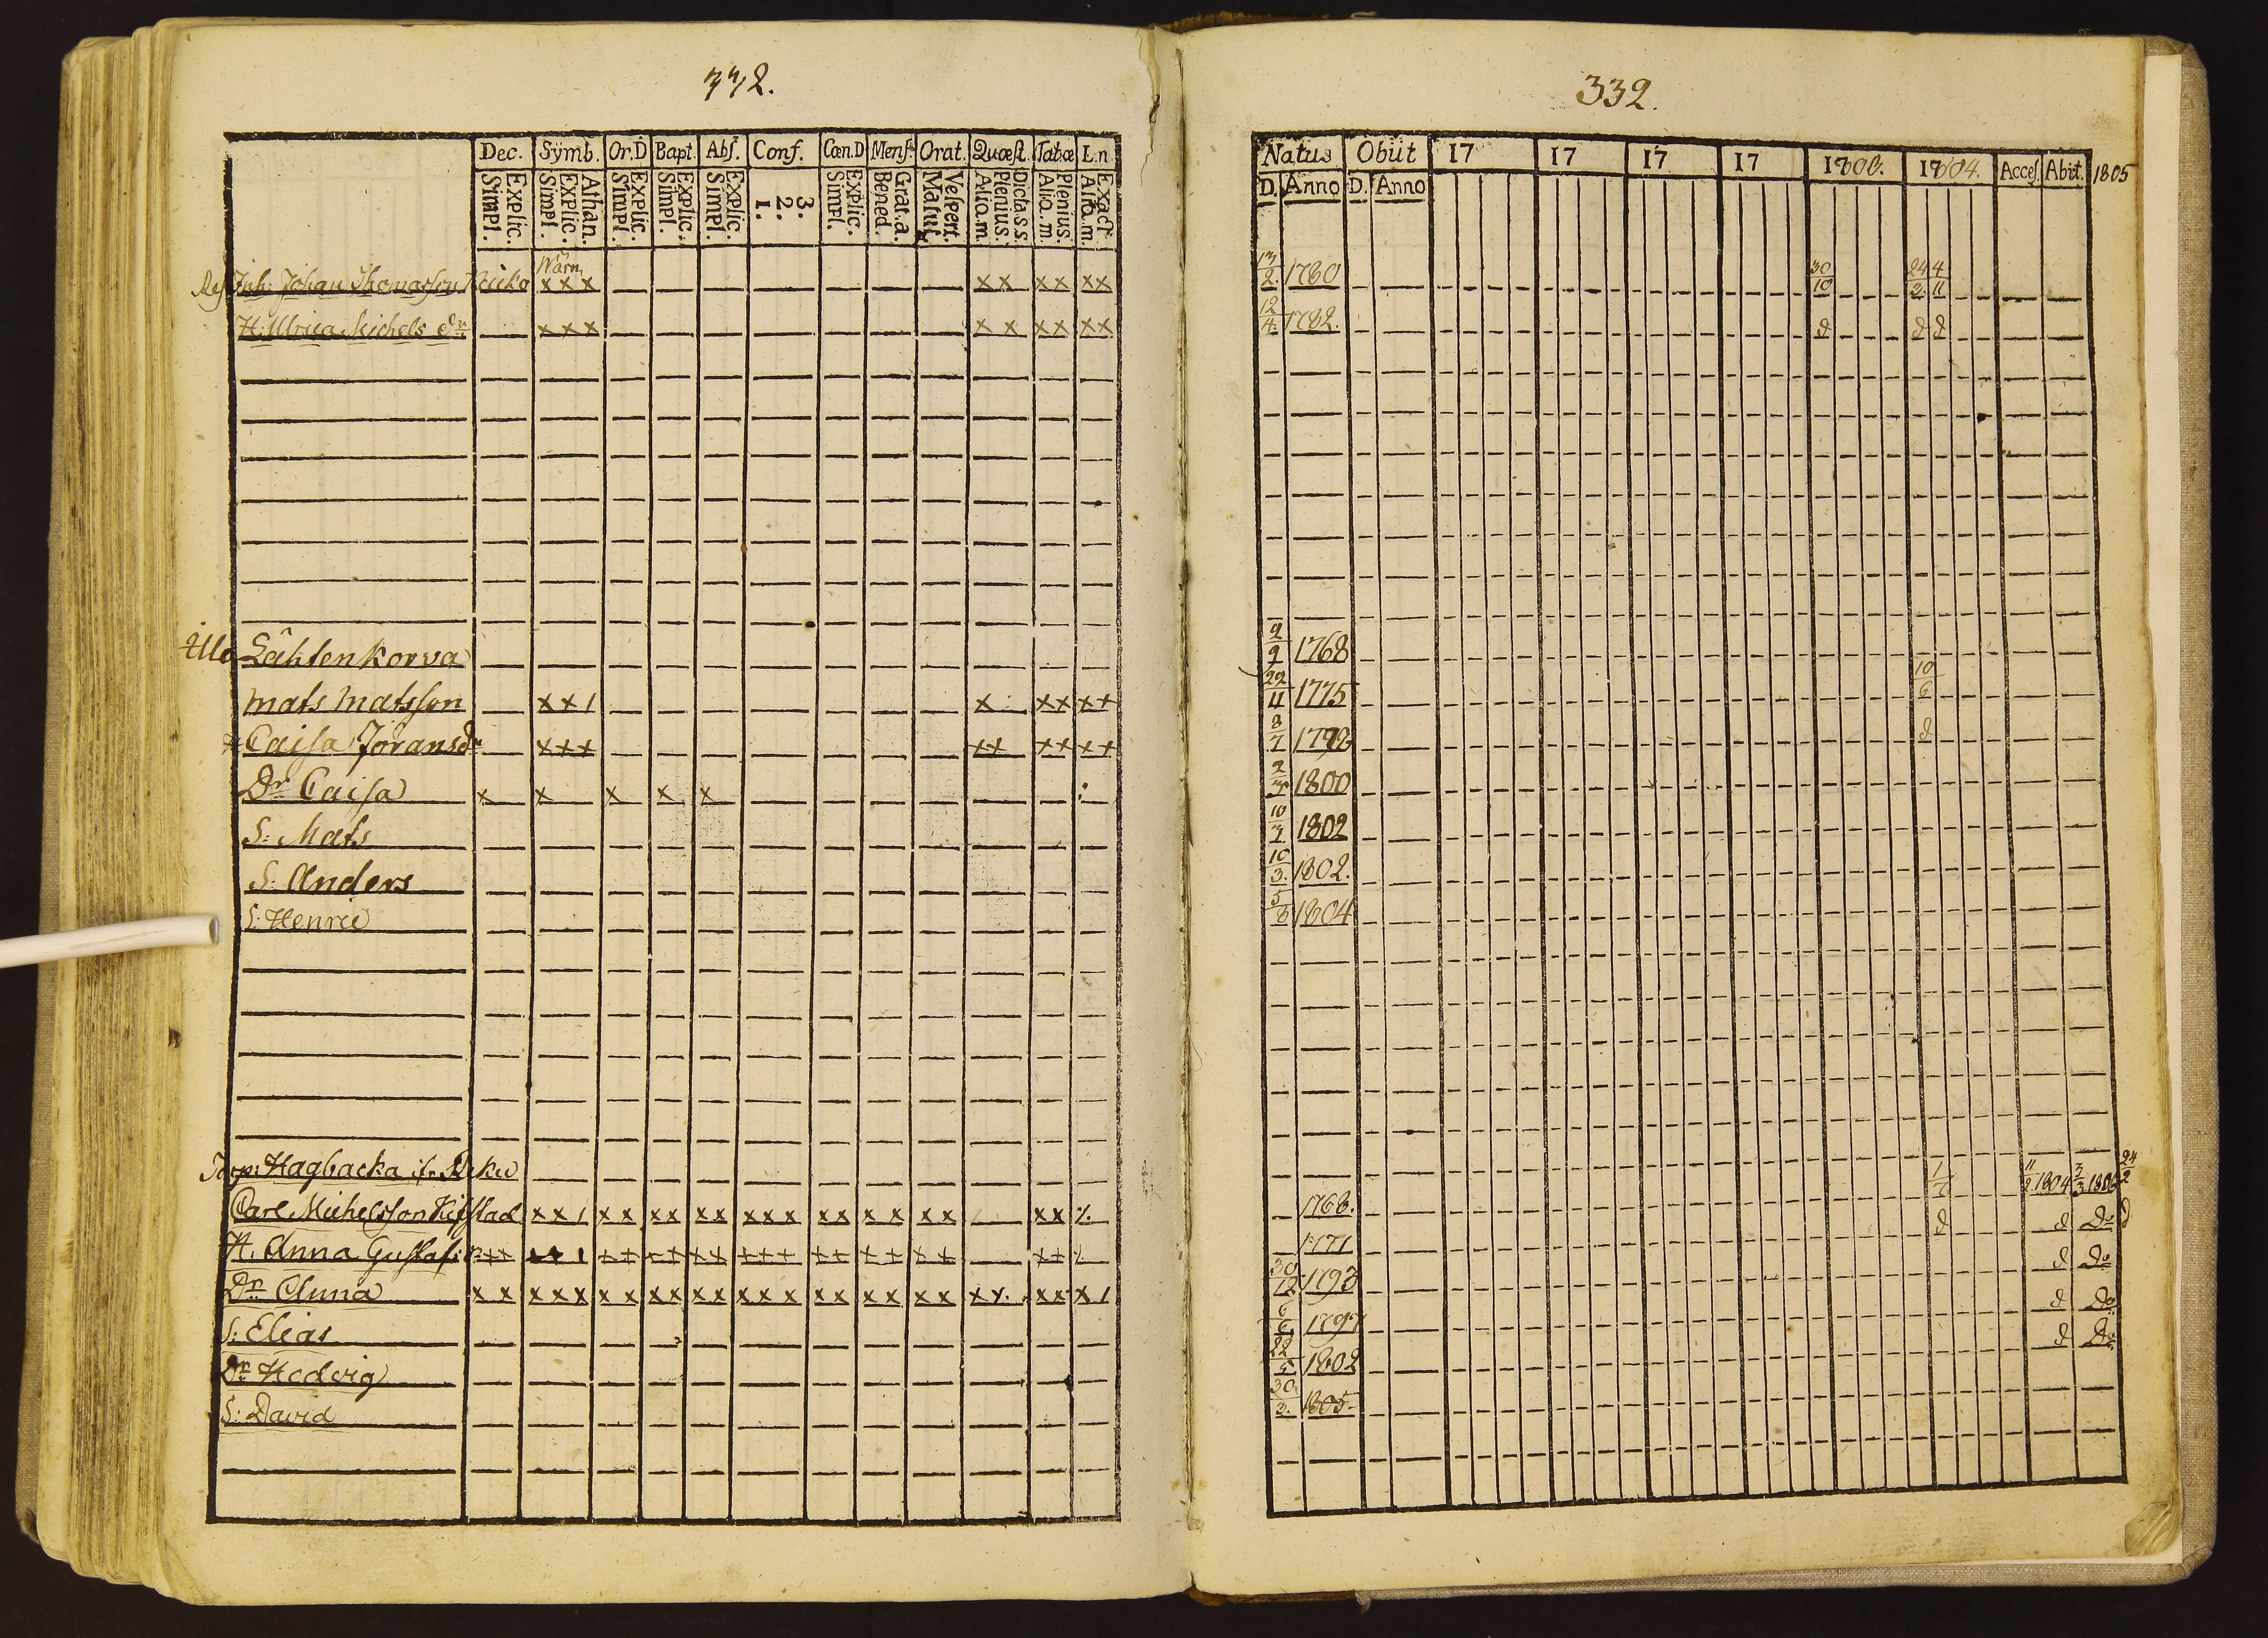 332.
Dec. Symb. Or.D Bapt. Abſ. Conf. Cœn.D Menſ. Orat. Quæſt. Tab.œ L.n
Explic. Simpl. Athan. Explic. Simpl. Explic. Simpl. Explic. Simpl. Explic. Simpl. 3. 2. 1. Explic. Simpl. Grat.a. Bened. Veſpert. Matut. Dicta.s.s. Plenius. Alio.m. Plenius. Alio.m. Exact Alio.m.
Wärn
Inh: Johan Thomasson x x x x x x x x x
H: Ulrica Michels dr x x x x x x x x x
Lähtenkorva
Mats Matsson x x 1 x x x x x
Cajsa Jöransdr x x x x x x x x x
Dr Caisa x x x x x
S: Mats
S. Anders
S: Henric
Torp: Hagbacka
Carl Michelsson x x 1 x x x x x x x x x x x x x x x x x x
H. Anna Gustafs x x x x 1 x x x x x x x x x x x x x x x x x x
Dr Anna x x x x x x x x x x x x x x x x x x x x x x x x x x 1
S: Elias
Dr Hedvig
S: David
332.
Natus Obiit 17 17 17 17 1803. 1804. Acceſ. Abit. 1805
D. Anno D. Anno
13/2 1780 30/10 24/3 4/11
12/4 1782. d d d
2/9 1768
22/11 1775 10/6
8/7 1798 d
2/3 1800
10/3 1802
10/3. 1802.
5/8 1804
1768. 1/7 11/2 1804 3/3 1806 24/2
1771 d d Do d
30/12 1793 d Do
6/6 1797 d Do
22/5 1802 d Do
30/3. 1805.